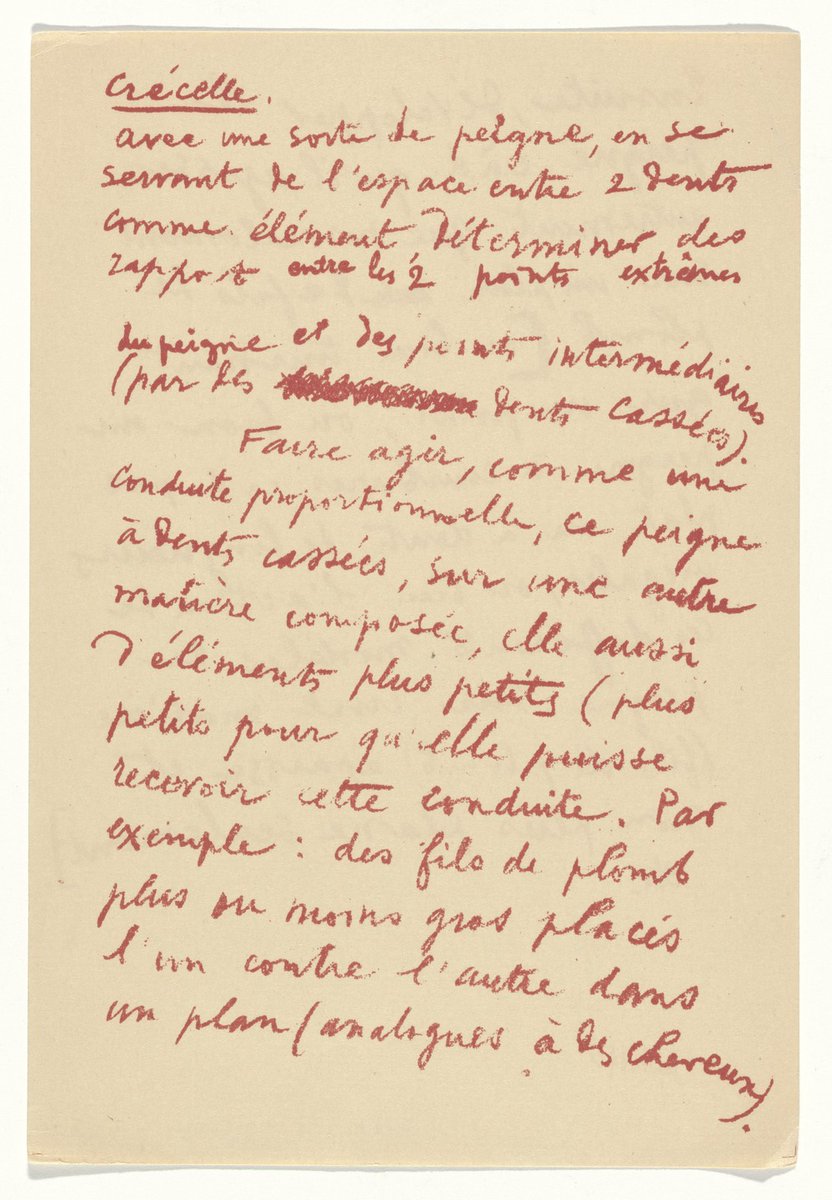 Crécelle.
avec une sorte de peigne, en se
servant de l'espace entre 2 dents
comme élément déterminer des
rapport entre les 2 points extrêmes
du peigne et des points intermédiaires
(par les dents cassées).
Faire agir, comme une
conduite proportionnelle, ce peigne
à dents cassées, sur une autre
matière composée, elle aussi
d'éléments plus petits (plus
petits pour qu'elle puisse
recevoir cette conduite. Par
exemple : des fils de plomb
plus ou moins gros placés
l'un contre l'autre dans
un plan (analogues à des cheveux).